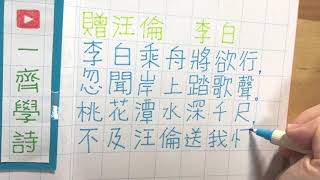 贈汪倫 李白
李白乘舟將欲行,
忽聞岸上踏歌聲。
桃花潭水深千尺,
不及汪倫送我
一齊學詩